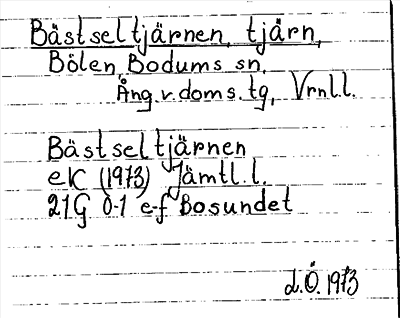 Bästseltjärnen, tjärn,
Bölen, Bodums sn,
Ång.v.doms.tg, Vrnl.l.
Bästseltjärnen
ek (1973) Jämtl.l.
21G 0-1 e-f Bosundet
L.Ö. 1973